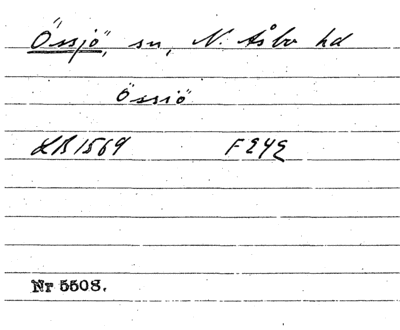 Össjö, sn, N. Åsbo hd
Össiö
LB 1569 F E4E
Nr 5508.